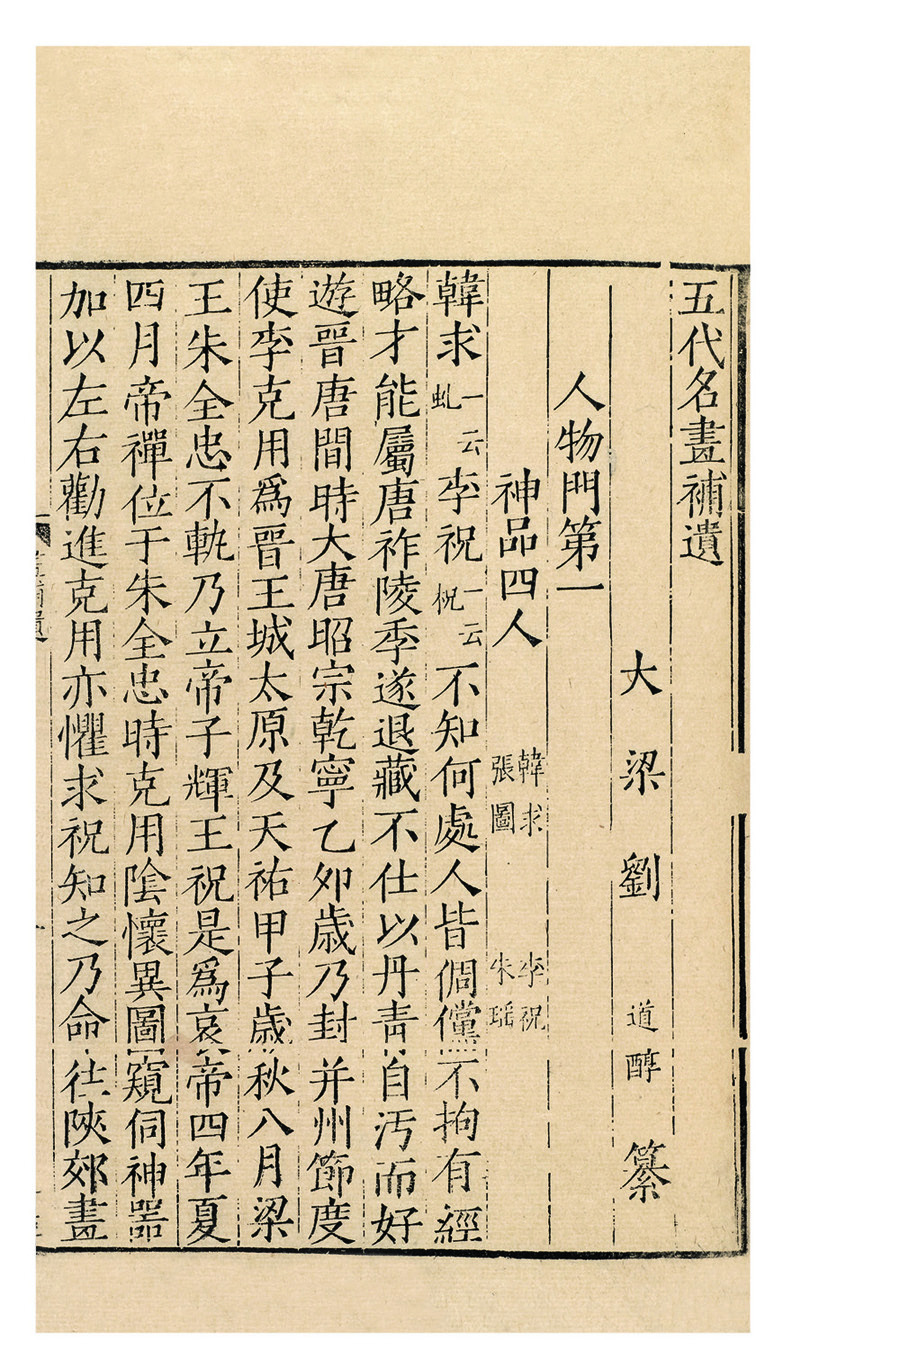 五代名畫補遺
大梁劉道醇纂
人物門第一
神品四人 韓求 李祝 張圖 朱瑶
韓求一云虬李祝一云柷不知何處人皆倜儻不拘有經
略才能屬唐祚陵季遂退藏不仕以丹靑自汚而好
遊晉唐間時大唐昭宗乾寧乙夘歳乃封并州節度
使李克用爲晉王城太原及天祐甲子歳秋八月梁
王朱全忠不軌乃立帝子輝王祝是爲哀帝四年夏
四月帝禪位于朱全忠時克用陰懷異圖窺伺神器
加以左右勸進克用亦懼求祝知之乃命往陝郊畫